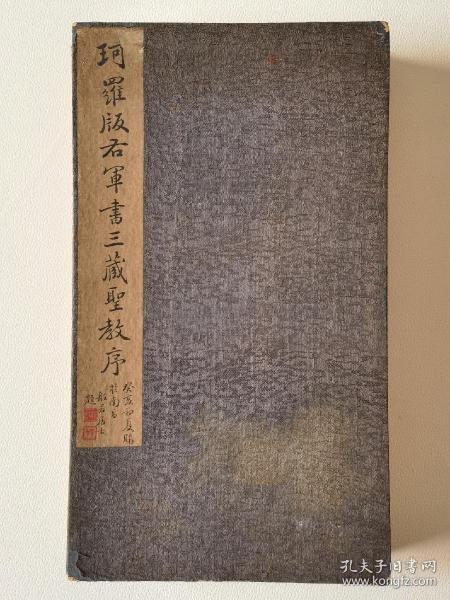 珂羅版右軍書三藏聖教序
癸亥初夏購
題
孔夫子旧书网
www.kongfz.com